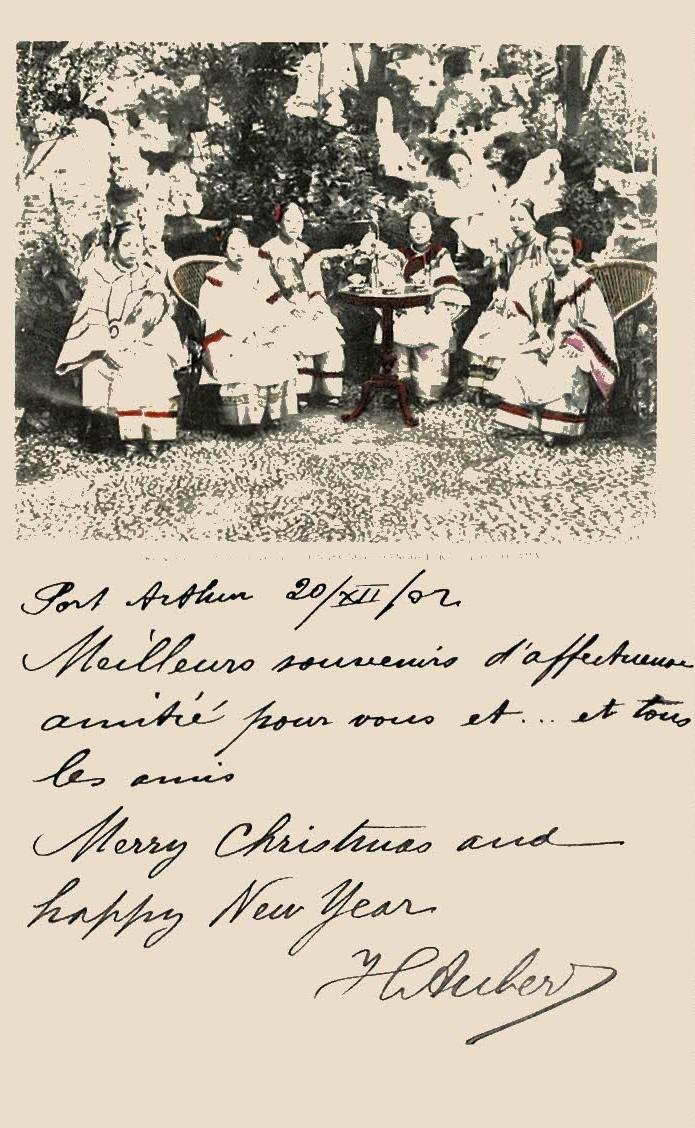 Port Arthur 20/XII/02
Meilleurs souvenirs d'affectueuse
amitié pour vous et... et tous
les amis
Merry Christmas and
happy New Year
H Auber